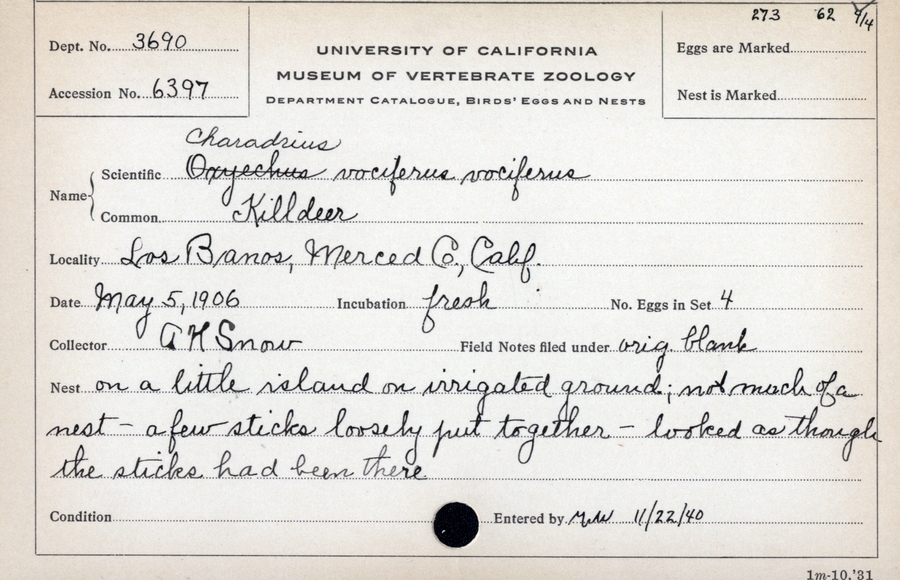 273 62 4/4
Dept. No. 3690
UNIVERSITY OF CALIFORNIA
MUSEUM OF VERTEBRATE ZOOLOGY
DEPARTMENT CATALOGUE, BIRDS' EGGS AND NESTS
Accession No. 6397
Eggs are Marked
Nest is Marked
Charadrius
Name Scientific Oxyechus vociferus vociferus
Common Killdeer
Locality Los Banos, Merced Co., Calif.
Date May 5, 1906 Incubation fresh No. Eggs in Set 4
Collector A H Snow Field Notes filed under orig. blank
Nest on a little island on irrigated ground; not much of a
nest - a few sticks loosely put together - looked as though
the sticks had been there
Condition Entered by 11/22/40
1m-10,'31